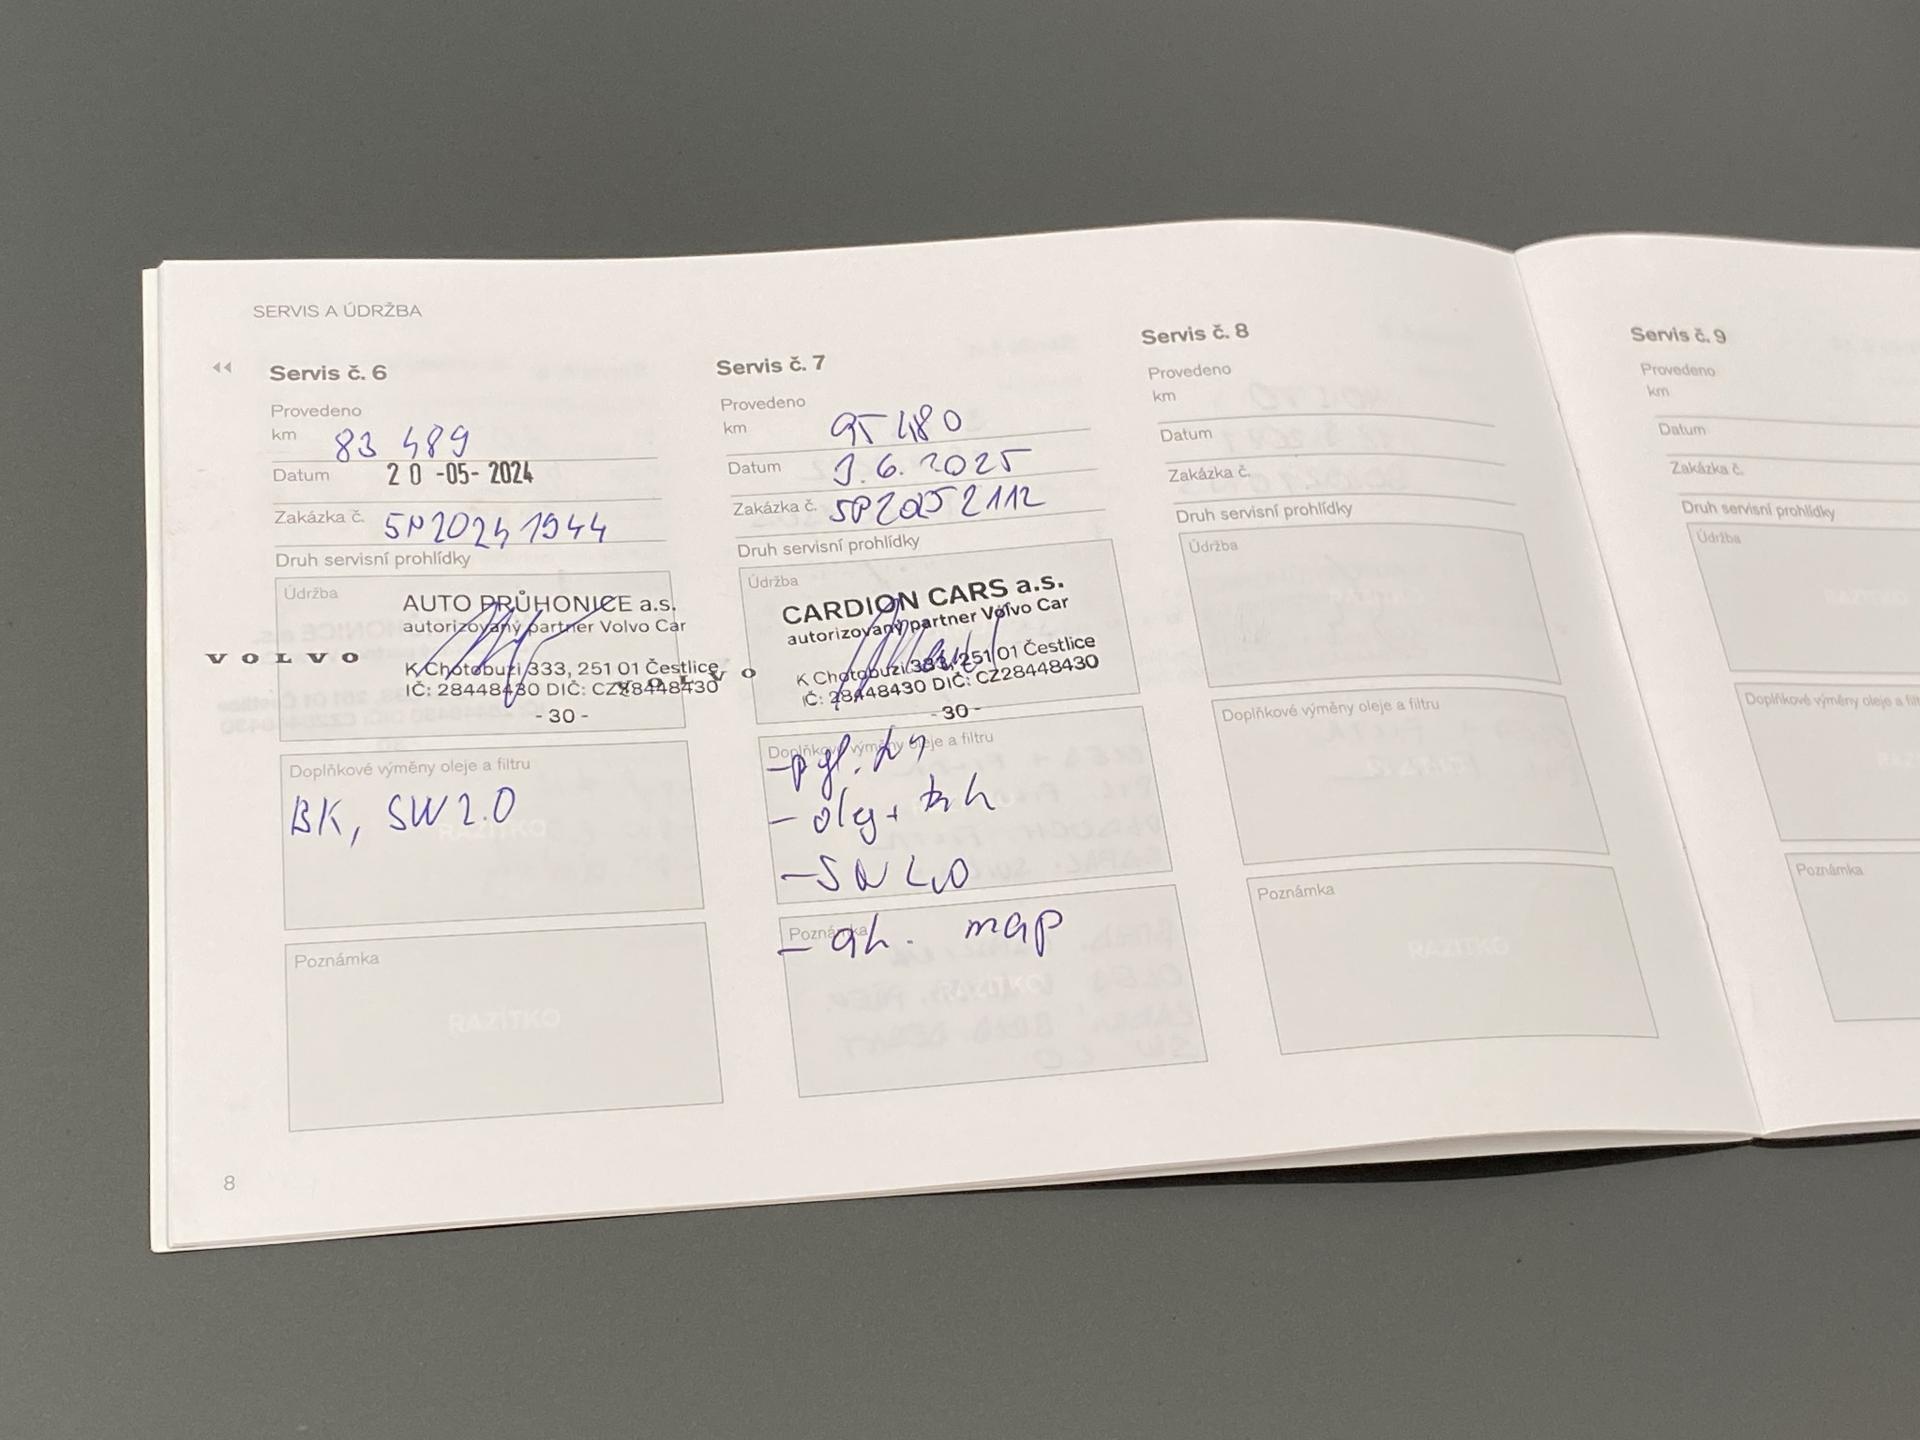 SERVIS A ÚDRŽBA
Servis č. 6
Provedeno
km 83 489
Datum 20 -05- 2024
Zakázka č. SP20241944
Druh servisní prohlídky
Údržba
AUTO PRŮHONICE a.s.
autorizovaný partner Volvo Car
VOLVO
K Chotobuzi 333, 251 01 Čestlice
IČ: 28448430 DIČ: CZ28448430
- 30 -
Doplňkové výměny oleje a filtru
BK, SW 2.0
RAZÍTKO
Poznámka
RAZÍTKO
8
Servis č. 7
Provedeno
km 95 480
Datum 3.6.2025
Zakázka č. SP20252112
Druh servisní prohlídky
Údržba
CARDION CARS a.s.
autorizovaný partner Volvo Car
VOLVO
K Chotobuzi 333, 251 01 Čestlice
IČ: 28448430 DIČ: CZ28448430
- 30 -
Doplňkové výměny oleje a filtru
Poznámka
- ah. map
RAZÍTKO
Servis č. 8
Provedeno
km
Datum
Zakázka č.
Druh servisní prohlídky
Údržba
Doplňkové výměny oleje a filtru
Poznámka
RAZÍTKO
Servis č. 9
Provedeno
km
Datum
Zakázka č.
Druh servisní prohlídky
Údržba
Doplňkové výměny oleje a
Poznámka